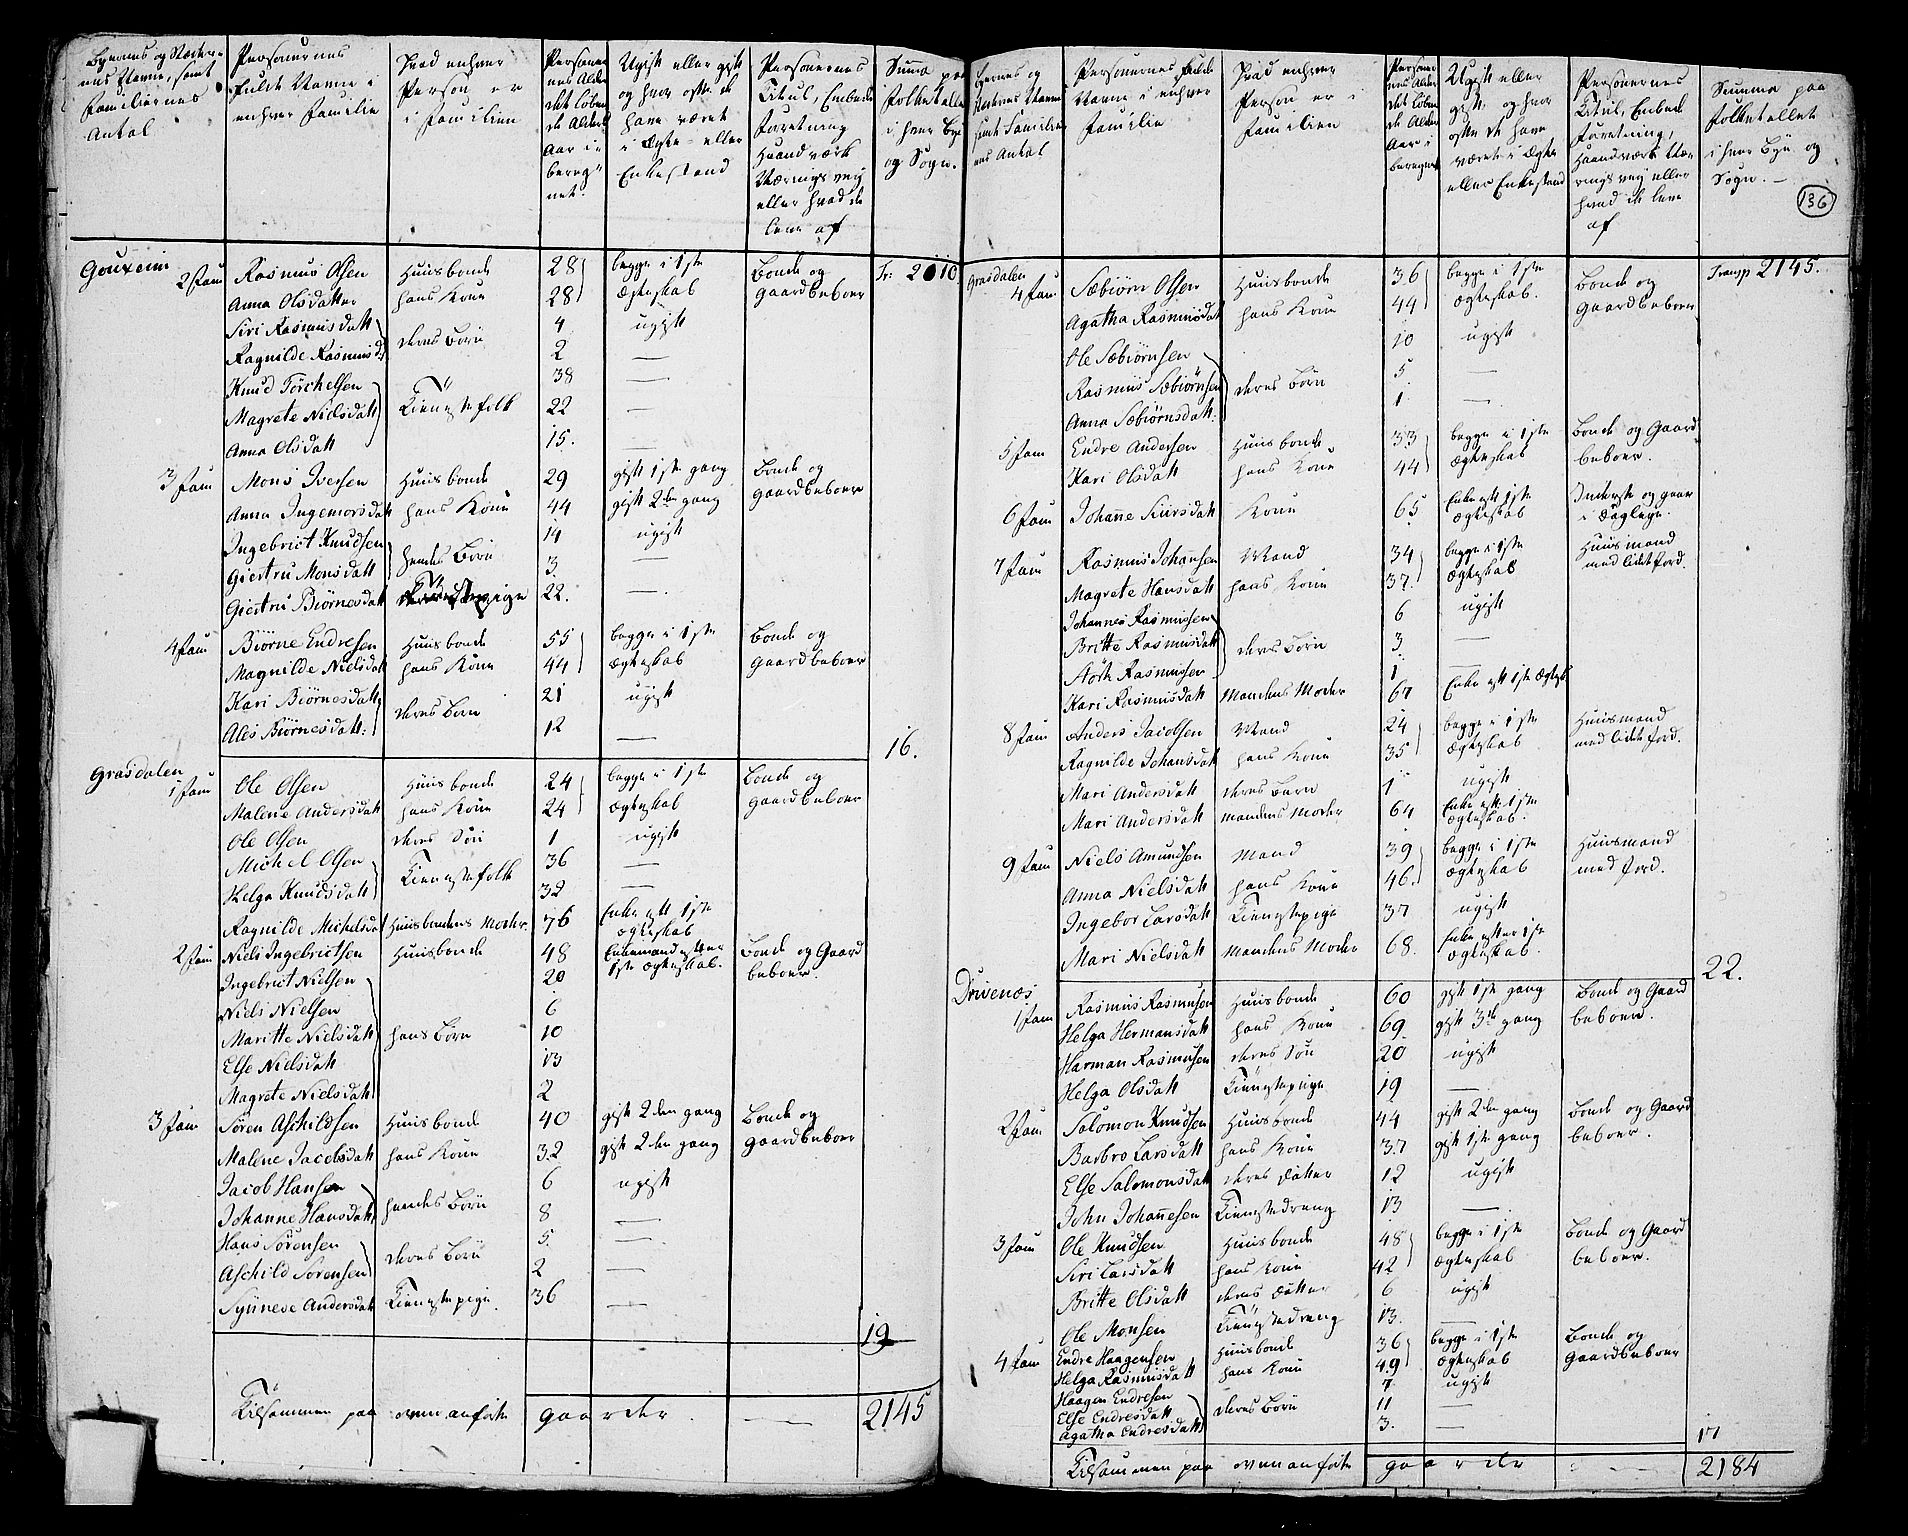 Byernes og Stæder-
nes Navne, samt
Familiernes
Antal
Personernes
fulde Navne i
enhver Familie
Hvad enhver
Person er
i Familien
Personer
nes Alder
det løben
de Alders
Aar i-
bereg-
net.
Ugift eller gift
og hvor ofte de
have været
i Ægte- eller
Enkestand
Personernes
Titul, Embede
Forretning
Haandværk
Næringsvej
eller hvad de
leve af
Summa paa
Folketallet
i hver Bye
og Sogn.
Gouxeim
2 Fam Rasmus Olsen Huusbonde 28 begge i 1ste Bonde og Tr: 2110
Anna Olsdatter hans Kone 28 Ægteskab Gaardbeboer
Siri Rasmusdatt deres Börn 4 ugift
Ragnilde Rasmusd: 2 —
Knud Torchelsen Tienestefolk 38 —
Magrete Nielsdatt 22 —
Anna Olsdatt 15. —
3 Fam Mons Iversen Huusbonde 29 gift 1ste gang Bonde og
Anna Ingemorsdatt hans Kone 44 gift 2den gang Gaardbeboer
Ingebrict Knudsen hendes Börn 14 ugift
Giertru Monsdatt 3. —
Giertru Biörnesdatt Tienestepige 22. —
4 Fam Biörne Endresen Huusbonde 55 begge i 1ste Bonde og
Magnilde Nielsdatt hans Kone 44 Ægteskab Gaardbeboer
Kari Biörnesdatt deres Börn 21 ugift
Ales Biörnesdatt: 12 —
16.
Grasdalen
1 Fam Ole Olsen Huusbonde 24 begge i 1ste Bonde og
Malene Andersdatt hans Kone 24 Ægteskab Gaardbeboer
Ole Olsen deres Sön 1 ugift
Michel Olsen Tienestefolk 36 —
Helga Knudsdatt 32 —
Ragnilde Michelsdat Huusbondens Moder. 76 Enke eft 1ste
Ægteskab
2 Fam Niels Ingebrictsen Huusbonde 48 Enkemand efter Bonde og Gaard
1ste Ægteskab. beboer.
Ingebrict Nielsen hans Börn 20
Niels Nielsen 6
Maritte Nielsdatt 10
Else Nielsdatt 13
Magrete Nielsdatt 2
3 Fam Sören Aschildsen Huusbonde 40 gift 2den gang Bonde og
Malene Jacobsdatt hans Kone 32 gift 2den gang Gaardbeboer
Jacob Hansen hendes Börn 6 ugift
Johanne Hansdatt 8 —
Hans Sörensen deres Börn 5. —
Aschild Sorensen 2 —
Synneve Andersdatt Tienestepige. 36 —
19
Tilsammen paa ovenanförte Gaarder. — 2145
Byernes og
Stedernes Navne
samt Familier
nes Antal
Personernes fulde
Navne i enhver
Familie
Hvad enhver
Person er i
Familien
Personer
nes Alder
det løben
de Alders
Aar i
beregnet
Ugift eller
gift, og hvor
ofte de have
været i Ægte
eller Enkestand
Personernes
Titul, Embede
Forretning,
Haandværk Næ
ringsvej eller
hvad de leve
af
Summa paa
Folketallet
i hver Bye og
Sogn.
136
Grasdalen
4 Fam: Sæbiörn Olsen Huusbonde 36 begge i 1ste Bonde og Transp 2145.
Agatha Rasmusdat hans Kone 44 Ægteskab. Gaardbeboer
Ole Sæbiörnsen deres Börn 10 ugift
Rasmus Sæbiörnsen 5 —
Anna Sæbiörnsdatt. 1 —
5 Fam Endre Andersen Huusbonde 33 begge i 1ste Bonde og Gaard
Kari Olsdatt hans Kone 44 Ægteskab beboer.
6 Fam Johañe Siursdatt Kone 65 Enke eft 1ste Inderste og gaar
Ægteskab i Dagleye.
7 Fam Rasmus Johansen Mand 34 begge i 1ste Huusmand
Magrete Hansdatt hans Kone 37. Ægteskab med lidet Jord.
Johannes Rasmussen deres Börn 6 ugift
Britte Rasmusdatt 3. —
Rasmussen 1 —
Kari Rasmusdatt Mandens Moder 67 Enke eft 1ste Ægtesk
8 Fam Anders Jacobsen Mand 24 begge i 1ste Huusmand
Ragnilde Johansdatt hans Kone 35 Ægteskab med lidet Jord.
Mari Andersdatt deres Barn 1 ugift
Mari Andersdatt mandens Moder 64 Enke eft 1ste
Ægteskab.
9 Fam Niels Amundsen Mand 39 begge i 1ste Huusmand
Anna Nielsdatt hans Kone 46. Ægteskab med Jord.
Ingebor Larsdatt Tienestepige 37 ugift
Mari Nielsdatt Mandens Moder 68. Enke efter 1ste
Ægteskab.
22.
Drivenæs
1 Fam Rasmus Rasmusen Huusbonde 60 gift 1ste gang Bonde og Gaard
Helga Hermansdatt hans Kone 69 gift 3de gang beboer.
Harman Rasmusen deres Sön 20 ugift
Helga Olsdatt Tienestepige 19 —
2 Fam Salomon Knudsen Huusbonde 44 gift 2den gang Bonde og Gaard
Barbro Larsdatt hans Kone 37 gift 1ste gang beboer.
Else Salomonsdatt deres Datter 12 ugift
John Johañesen Tienestedreng 13 —
3 Fam Ole Knudsen Huusbonde 48 begge i 1ste Bonde og Gaard
Siri Larsdatt hans Kone 42 Ægteskab beboer.
Britte Olsdatt deres Datter 6 ugift
Ole Monsen Tienestedreng 13. —
4 Fam Endre Haagensen Huusbonde 36 begge i 1ste Bonde og
Helga Rasmusdatt hans Kone 49 Ægteskab Gaardbeboer
Haagen Endresen deres Börn 7 ugift
Else Endresdatt 11 —
Agatha Endresdatt 3. —
17
Tilsammen paa ovenanförte Gaarder — 2184